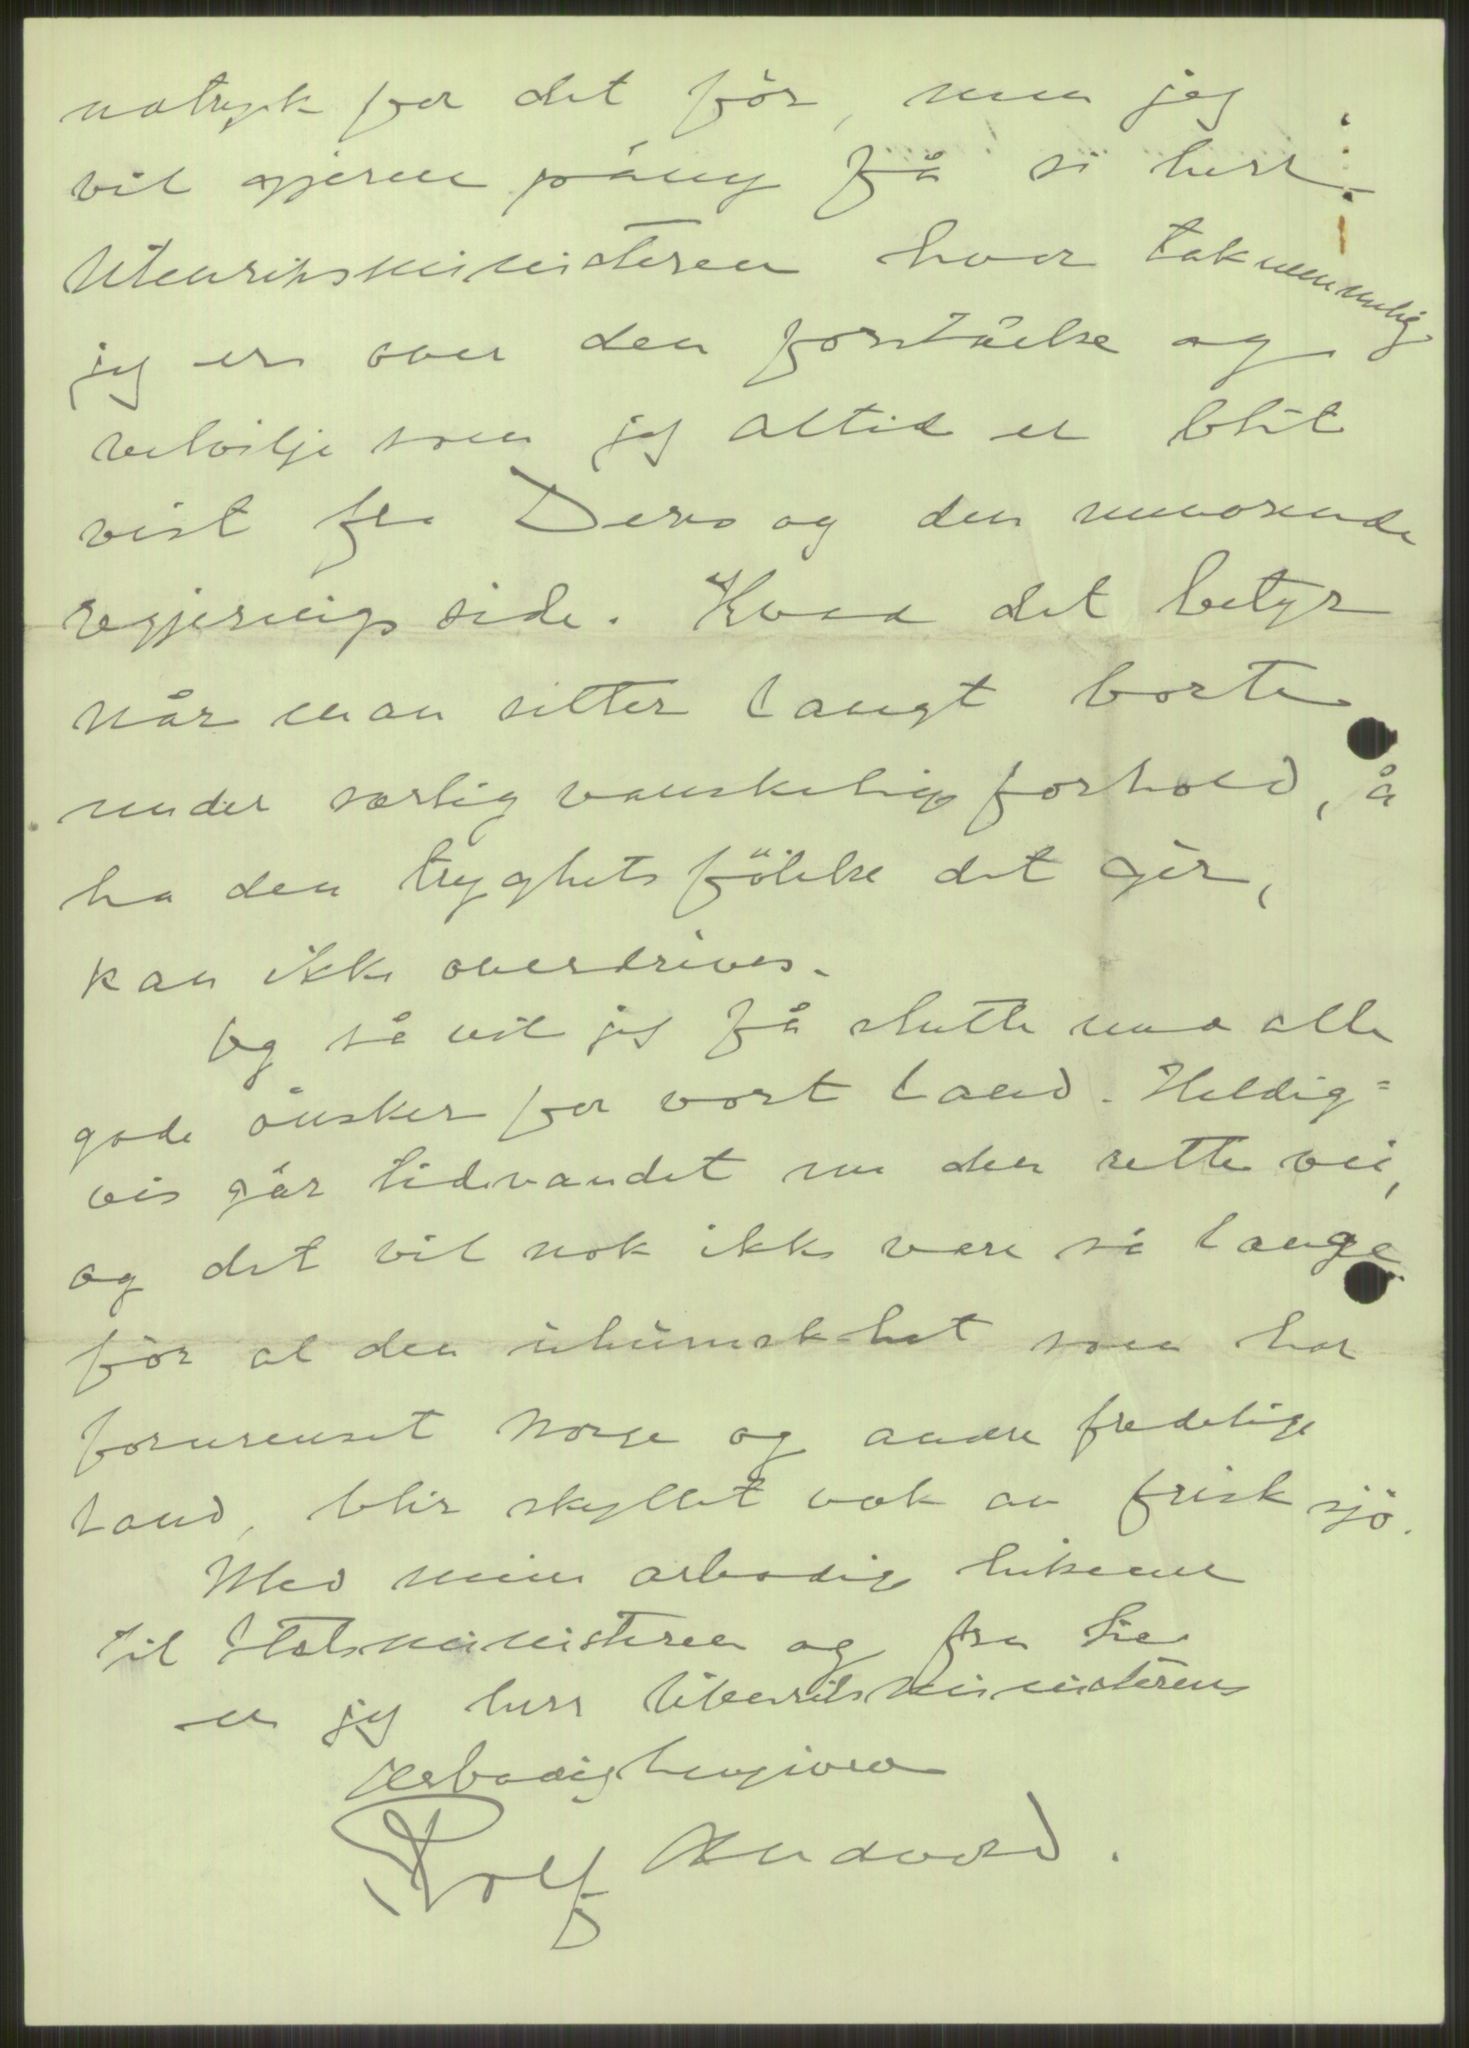 uttryk for det för, men jeg
vil gjerne påny få si herr
Utenriksministeren hvor taknemmelig
jeg er over den forståelse og
velvilje som jeg altid er blit
vist fra Deres og den nuværende
regjerings side. Hvad det betyr
når man sitter langt borte
under særlig vanskelige forhold, å
ha den tryghetsfölelse det gir,
kan ikke overdrives.
Og så vil jeg få slutte med alle
gode önsker for vort land. Heldig=
vis går tidevandet nu den rette vei,
og det vil nok ikke være så lange
för al den uhumskhet som har
forurenset Norge og andre fredelige
land, blir skyllet væk av frisk sjö.
Med min ærbødige hilsener
til Statsministeren og fru Lie
er jeg herr Utenriksministerens
ærbødig hengivne
Rolf Andvord.